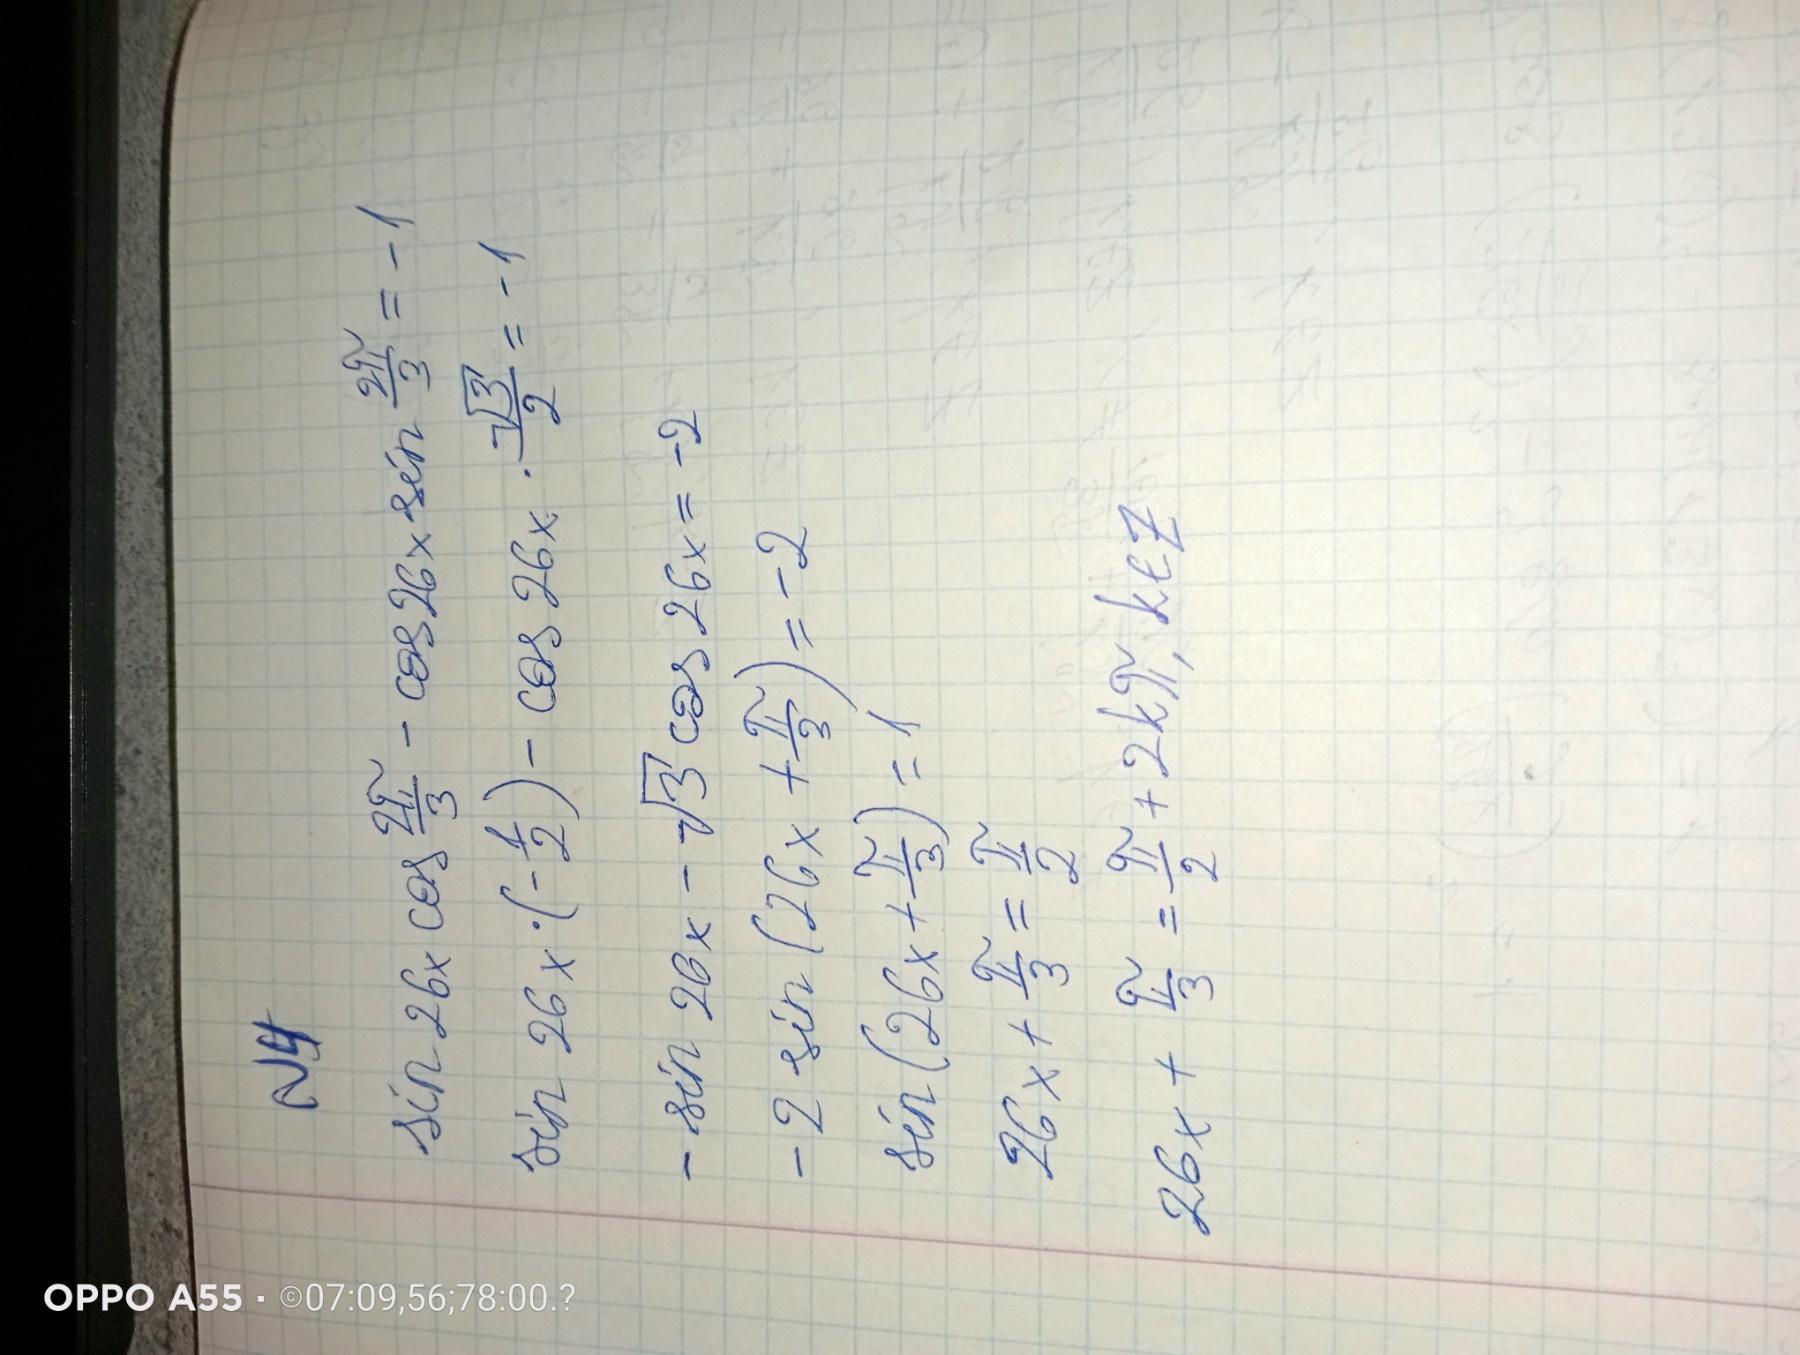 N4
sin 26x cos 2π/3 - cos 26x sin 2π/3 = -1
sin 26x · (-1/2) - cos 26x · √3/2 = -1
- sin 26x - √3 cos 26x = -2
-2 sin (26x + π/3) = -2
sin (26x + π/3) = 1
26x + π/3 = π/2
26x + π/3 = π/2 + 2kπ, k∈Z
OPPO A55 · ©07:09,56;78:00.?